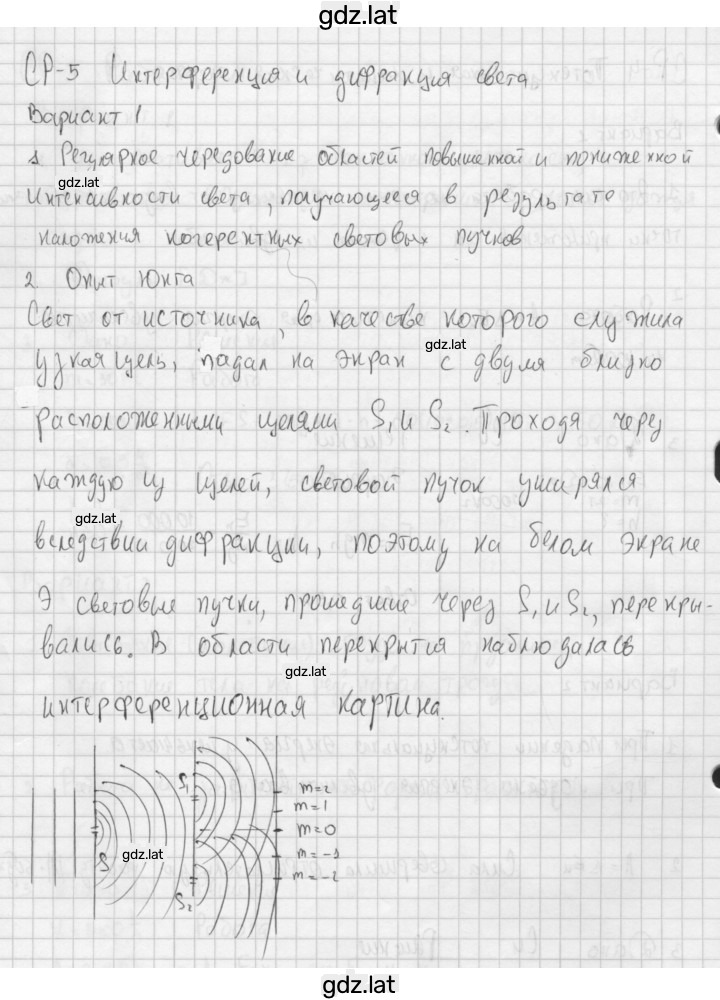 gdz.lat
СР-5 Интерференция и дифракция света
Вариант 1
1. Регулярное чередование областей повышенной и пониженной
gdz.lat
интенсивности света, получающееся в результате
наложения когерентных световых пучков
2. Опыт Юнга
Свет от источника, в качестве которого служила
gdz.lat
узкая щель, падал на экран с двумя близко
расположенными щелями S₁ и S₂. Проходя через
каждую из щелей, световой пучок уширялся
gdz.lat
вследствии дифракции, поэтому на белом экране
Э световые пучки, прошедшие через S₁ и S₂, перекры-
вались. В области перекрытия наблюдалась
gdz.lat
интерференционная картина.
S₁
m=2
m=1
m=0
gdz.lat
S
m=-1
m=-2
S₂
gdz.lat